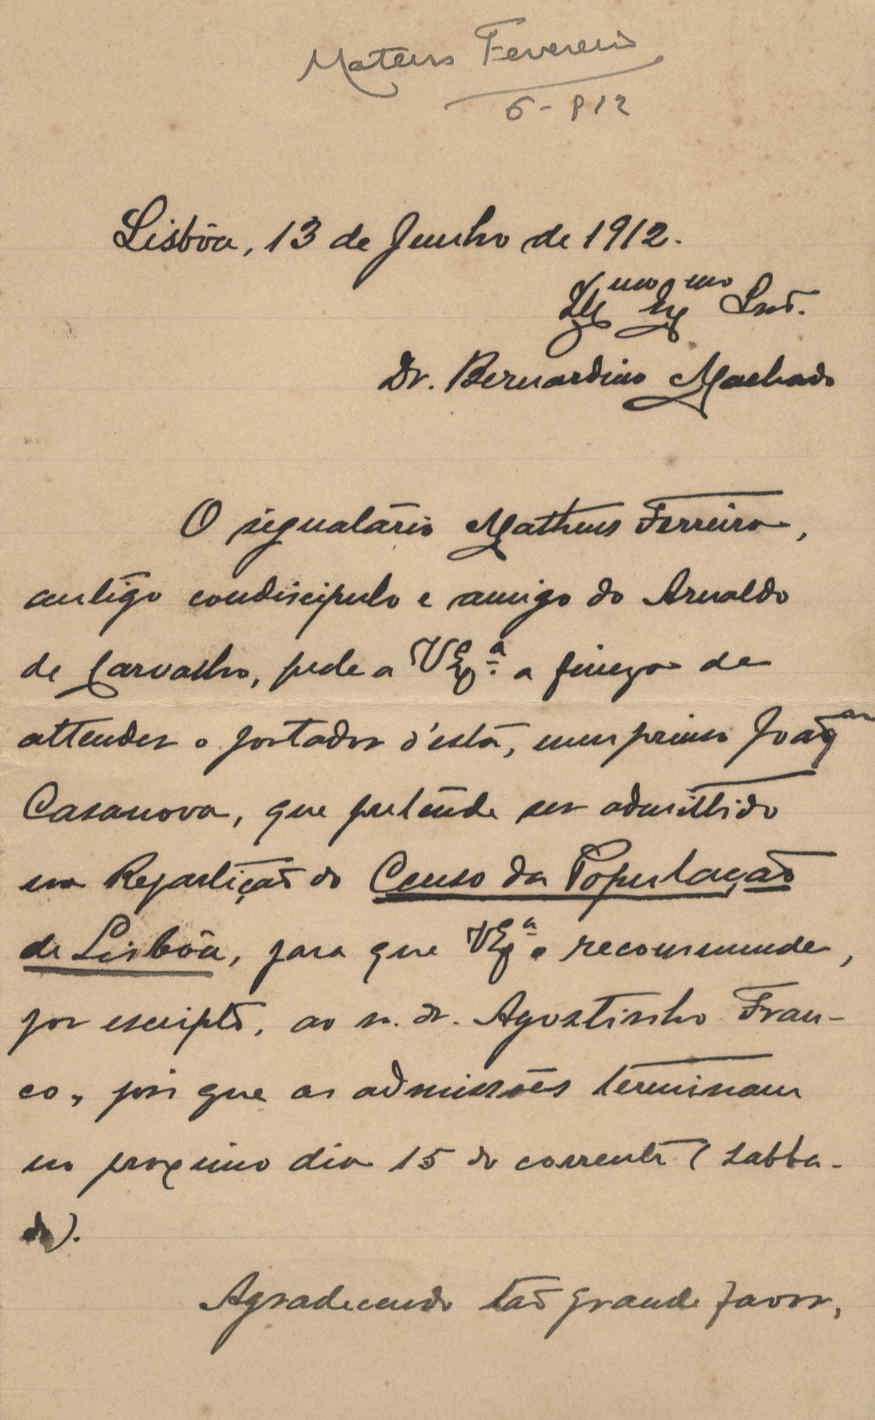 Mateus Fevereiro
6-912
Lisbôa, 13 de Junho de 1912.
Illmo Exmo Snr.
Dr. Bernardino Machado
O signatário Matheus Ferreira,
antigo condiscipulo e amigo do Arnaldo
de Carvalho, pede a V Exª. a fineza de
attender o portador d'esta, meu primo Joaqm
Casanova, que pretende ser admittido
na Repartição do Censo da População
de Lisbôa, para que V Exª o recommende,
por escripto, ao sr. dr. Agostinho Fran-
co, pois que as admissões terminam
no proximo dia 15 do corrente (sabba-
do).
Agradecendo tão grande favor,